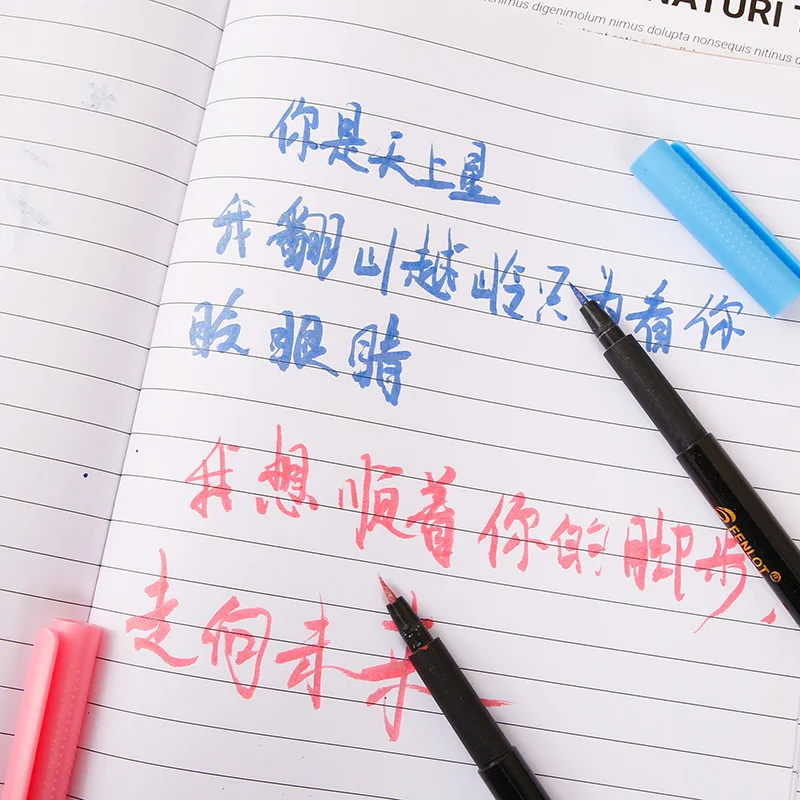 NATURI T
digenimolum nimus dolupta nonsequis nitinus d
你是天上星
我翻山越岭只为看你
眨眼睛
我想顺着你的脚步、
走向未来
FENLOT®